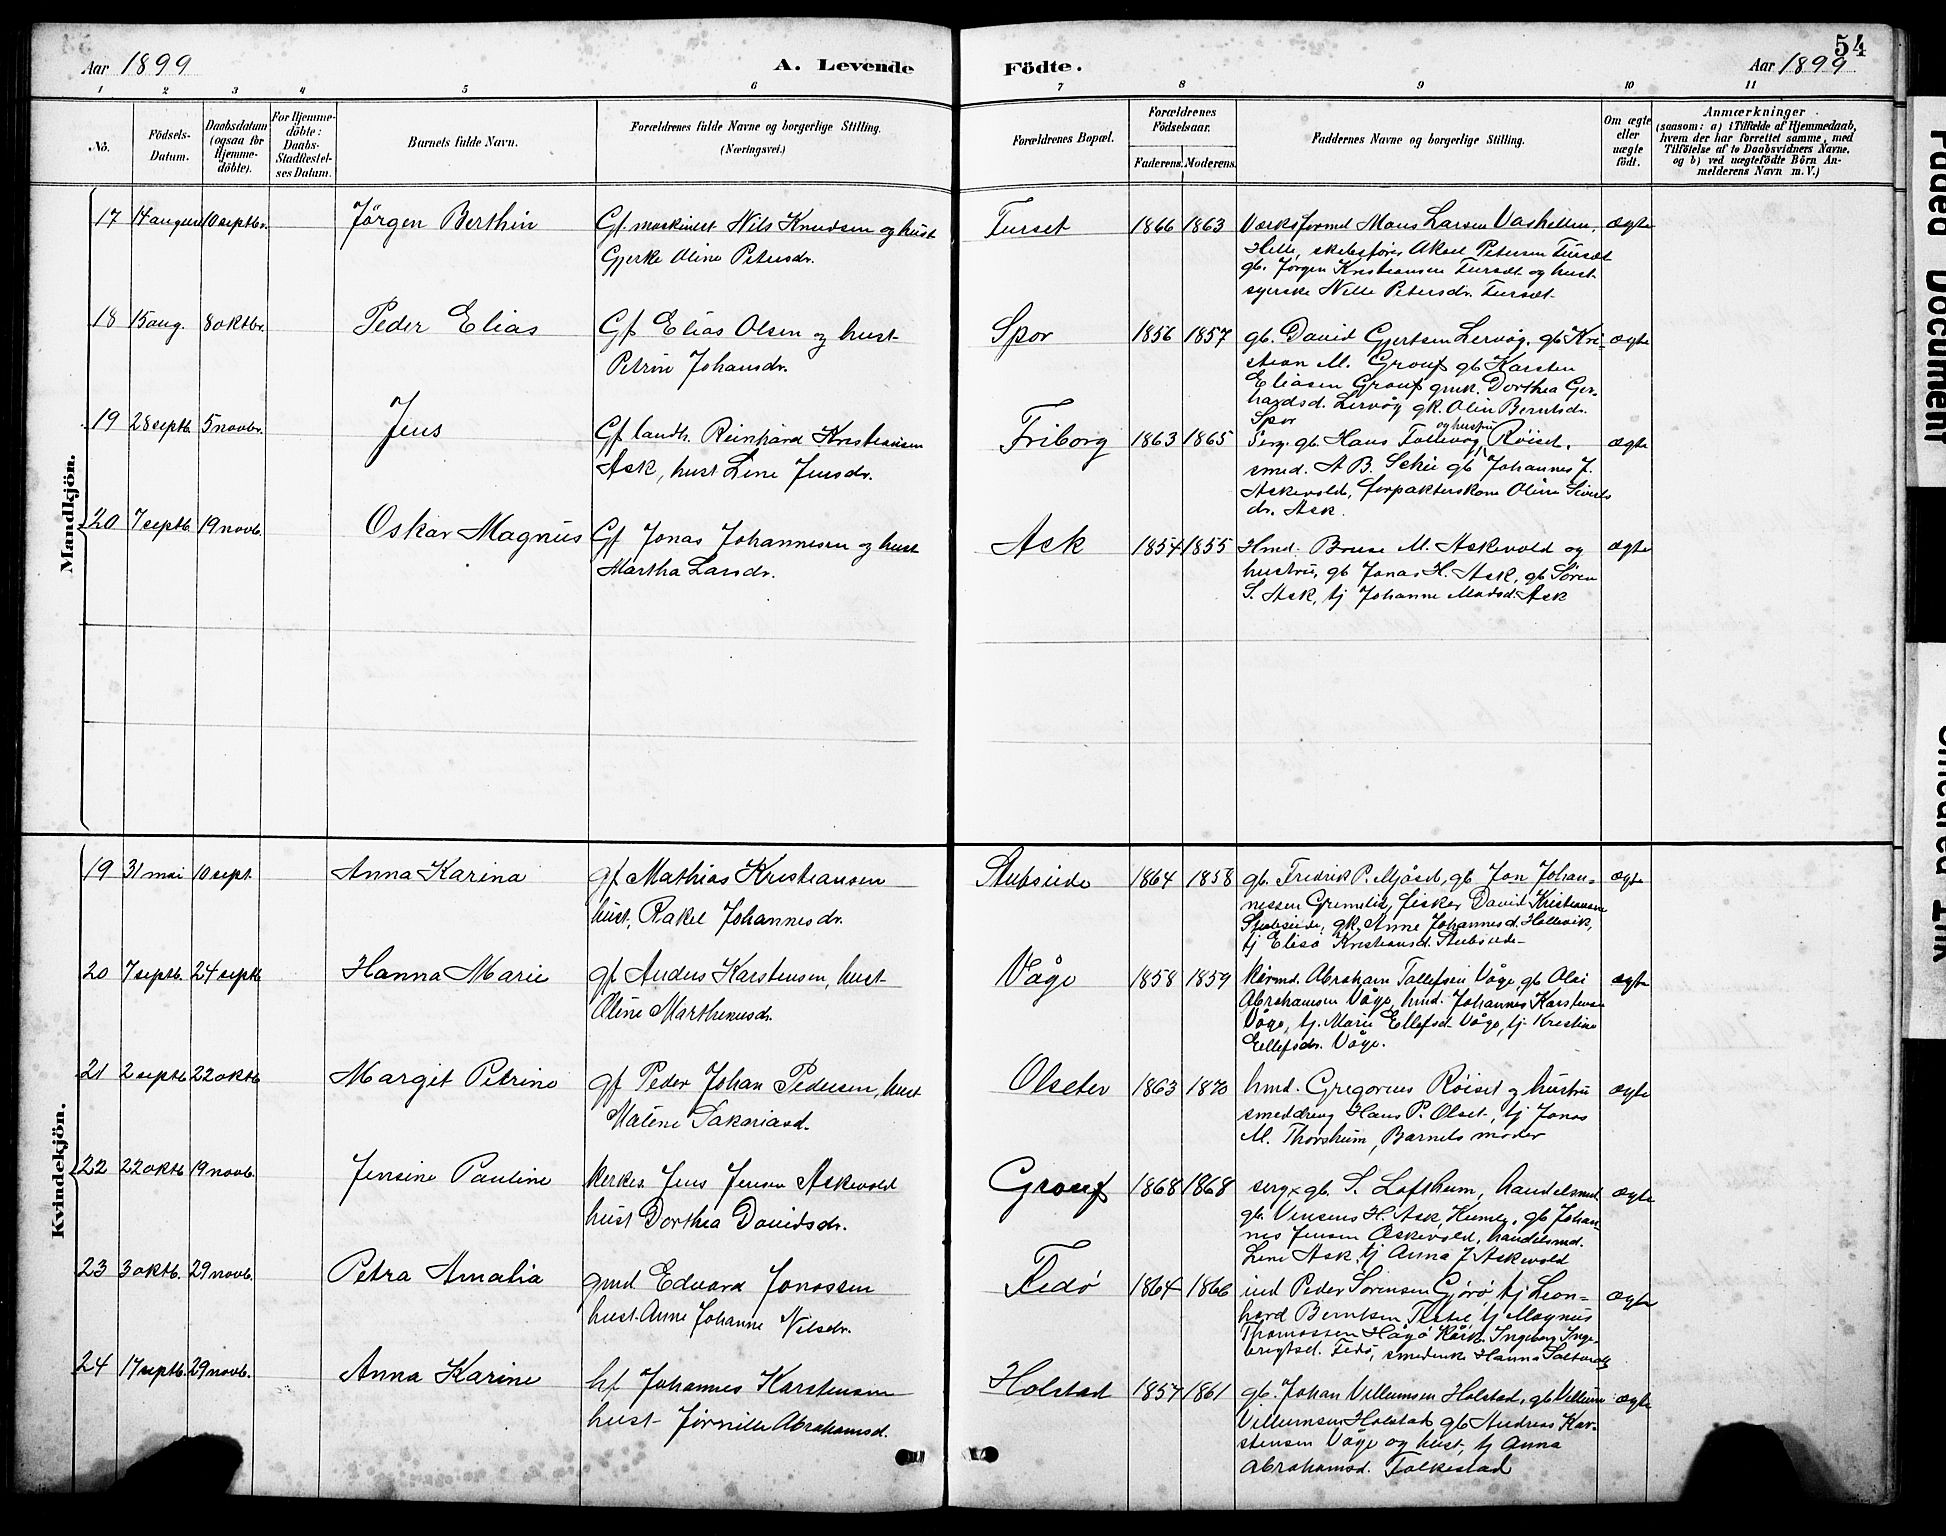 54
Aar 1899
A. Levende
Födte.
Aar 1899
1 2 3 4 5 6 7 8 9 10 11
No.
Födsels-
Datum.
Daabsdatum
(ogsaa for
Hjemme-
döbte).
For Hjemme-
döbte:
Daabs-
Stadfæstel-
ses Datum.
Barnets fulde Navn.
Forældrenes fulde Navne og borgerlige Stilling.
(Næringsvei.)
Forældrenes Bopæl.
Forældrenes
Födselsaar.
Faderens. Moderens.
Faddernes Navne og borgerlige Stilling.
Om ægte
eller
uægte
födt.
Anmærkninger
(saasom: a) i Tilfælde af Hjemmedaab,
hvem der har forrettet samme, med
Tilföielse af to Daabsvidners Navne,
og b) ved uægtefödte Börn An-
melderens Navn m. V.)
Mandkjön.
17 14 august 10 septbr. Jørgen Berthin
Gf. maskinist Nils Knudsen og hust
Gjerke Oline Petersdr.
Furset 1866 1863
Værksformd Mons Larsen Vashellen,
Helle, skibsfører Aksel Petersen Fursæt
gb. Jørgen Kristiansen Fursæt og hust
syerske Nille Petersdr. Fursæt
ægte
18 15 aug. 8 oktbr. Peder Elias
Gf Elias Olsen og hust
Petrin Johansdr.
Spor 1856 1857
gb. David Gjertsen Lervåg, gb Kri-
stian M. Grouf gb Karsten
Eliasen Grouf gmk. Dorthea Ger-
hardsd. Lervåg gk. Olin Berntsdr.
Spor
ægte
19 28 septb 5 novbr. Jens
Gf landh. Reinhard Kristiansen
Ask, hust Line Jensdr.
Friborg 1863 1865
og hustru
Serg. gb. Hans Tollevåg, Røiset,
smed. A B. Schie gb Johannes J.
Askevold, forpakterskone Oline Siverts
dr. Ask.
ægte
20 7 septb. 19 novb. Oskar Magnus
Gf Jonas Johannesen og hust
Martha Larsdr.
Ask 1854 1855
Hmd. Bruse M. Askevold og
hustru, gb Jonas H. Ask, gb Søren
S. Ask, tj Johanne Madsd. Ask
ægte
Kvindekjön.
19 31 mai 10 sept. Anna Karina
gf Mathias Kristiansen
hust, Rakel Johannesdr.
Stubseide 1864 1858
gb. Fredrik P. Mjåset, gb Jon Johan-
nessen Grimelid, fisker David Kristiansen
Stubseide, gk Anne Johannesd. Hollevik,
tj Elisa Kristiansd. Stubseide
ægte
20 7 septb. 24 septb Hanna Marie
gf Anders Karstensen, hust
Oline Marthinusdr.
Våge 1858 1859
kårmd. Abraham Tollefsen Våge gb Olai
Abrahamsen Våge, hmd. Johannes Karstensen
Våge, tj. Marie Ellefsd. Våge, tj. Kristine
Ellefsdr. Våge.
ægte
21 2 septb 22 oktb Margit Petrine
gf Peder Johan Pedersen, hust
Malene Sakariasd.
Olseter 1863 1870
hmd. Gregorius Røiset og hustru
smeddreng Hans P. Olset, tj Jonas
M. Thorsheim, Barnets moder
ægte
22 22 oktb 19 novb. Jensine Pauline
kirkes. Jens Jensen Askevold
hust Dorthea Davidsdr.
Grouf 1868 1868
serg. gb. S. Loftheim, handelsmd
gb. Vinsens H. Ask, Humle, gb Johan
nes Jensen Askevold, handelsmd.
Line Ask, tj Anna J. Askevold
ægte
23 3 oktb. 29 novb. Petra Amalia
gmd Edvard Jonassen
hust. Anne Johanne Nilsdr.
Fedø 1864 1866
ind Peder Sørensen Gjørø, tj Leon-
hard Berntsen Flokie, tj Magnus
Thomassen Hågø Kårk. Ingeborg Inge-
brigtsd. Fedø, smedenke Hanna
ægte
24 17 septb. 29 novb. Anna Karine
hf Johannes Karstensen
hust Jørnille Abrahamsd.
Holstad 1857 1861
gb. Johan Villumsen Holstad, gb Villum
Villumsen Holstad gb Andreas Kar-
stensen Våge og hust, tj Anna
Abrahamsd. Folkestad
ægte
Faded Document
Smeared Ink